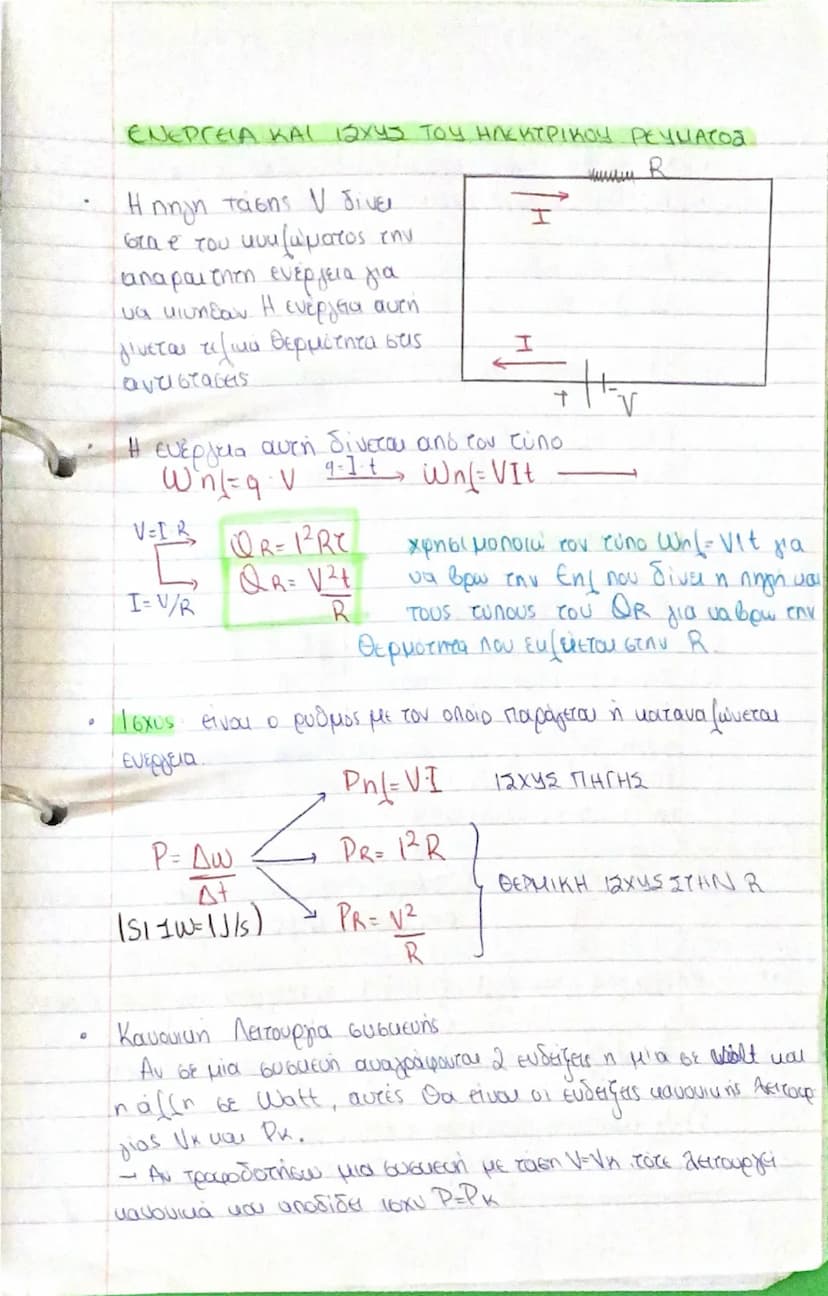 ΕΝΕΡΓΕΙΑ ΚΑΙ ΙΣΧΥΣ ΤΟΥ ΗΛΕΚΤΡΙΚΟΥ ΡΕΥΜΑΤΟΣ
R
I
• Η πηγη τάσης V δινει
στα e του κυκλώματος την
απαραιτητη ενέργεια για
να κινηθουν Η ενέργεια αυτη
γίνεται τελικα θερμότητα στις
αντιστασεις
I
+ - V
• Η ενέργεια αυτή δίνεται από τον τύπο
Wηλ=q·V q=I·t Wηλ=VIt
V=I·R
QR=I²Rt
I=V/R
QR=V²t/R
χρησιμοποιώ τον τυπο Wηλ=VIt για
να βρω την Eηλ που δίνει η πηγή και
τους τυπους του QR για να βρω την
θερμοτητα που εκλύεται στην R.
• Ισχυς είναι ο ρυθμος με τον οποιο παράγεται ή καταναλώνεται
ενεργεια.
Pηλ=V·I ΙΣΧΥΣ ΠΗΓΗΣ
P=Δw/Δt
PR=I²R
ΘΕΡΜΙΚΗ ΙΣΧΥΣ ΣΤΗΝ R
(SI 1W=1J/s)
PR=V²/R
• Κανονικη Λειτουργία συσκευής
Αν σε μια συσκευή αναγράφονται 2 ενδείξεις η μία σε Volt και
η άλλη σε Watt, αυτές θα είναι οι ενδειξεις κανονικής λειτουρ
γίας Vκ και Pκ.
- Αν τροφοδοτήσω μια συσκευή με ταση V=Vκ τότε λειτουργεί
κανονικά και αποδίδει ισχυ P=Pκ